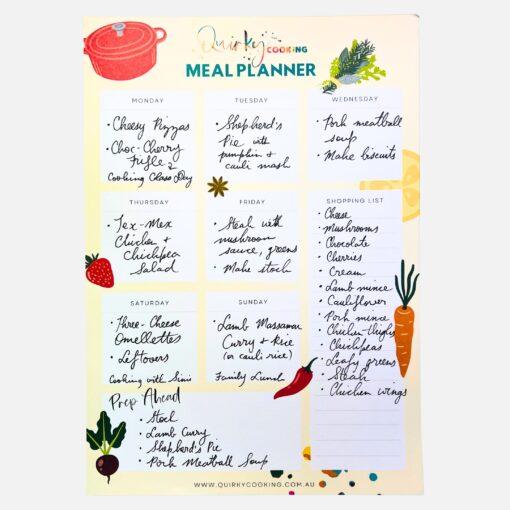 Quirky COOKING
MEAL PLANNER
MONDAY
• Cheesy Pizzas
• Choc-Cherry
Trifle 2
Cooking Class Day
TUESDAY
• Shepherd's
Pie with
pumpkin +
cauli mash
WEDNESDAY
• Pork meatball
soup
• Make biscuits
THURSDAY
• Tex-Mex
Chicken +
Chickpea
Salad
FRIDAY
• Steak with
mushroom
sauce, greens
• Make stock
SHOPPING LIST
• Cheese
• Mushrooms
• Chocolate
• Cherries
• Cream
• Lamb mince
• Cauliflower
• Pork mince
• Chicken thighs
• Chickpeas
• Leafy greens
• Steak
• Chicken wings
SATURDAY
• Three-Cheese
Omellettes
• Leftovers
Cooking with Simi
SUNDAY
• Lamb Massaman
Curry + Rice
(or cauli rice)
Family Lunch
Prep Ahead
• Stock
• Lamb Curry
• Shepherd's Pie
• Pork Meatball Soup
WWW.QUIRKYCOOKING.COM.AU